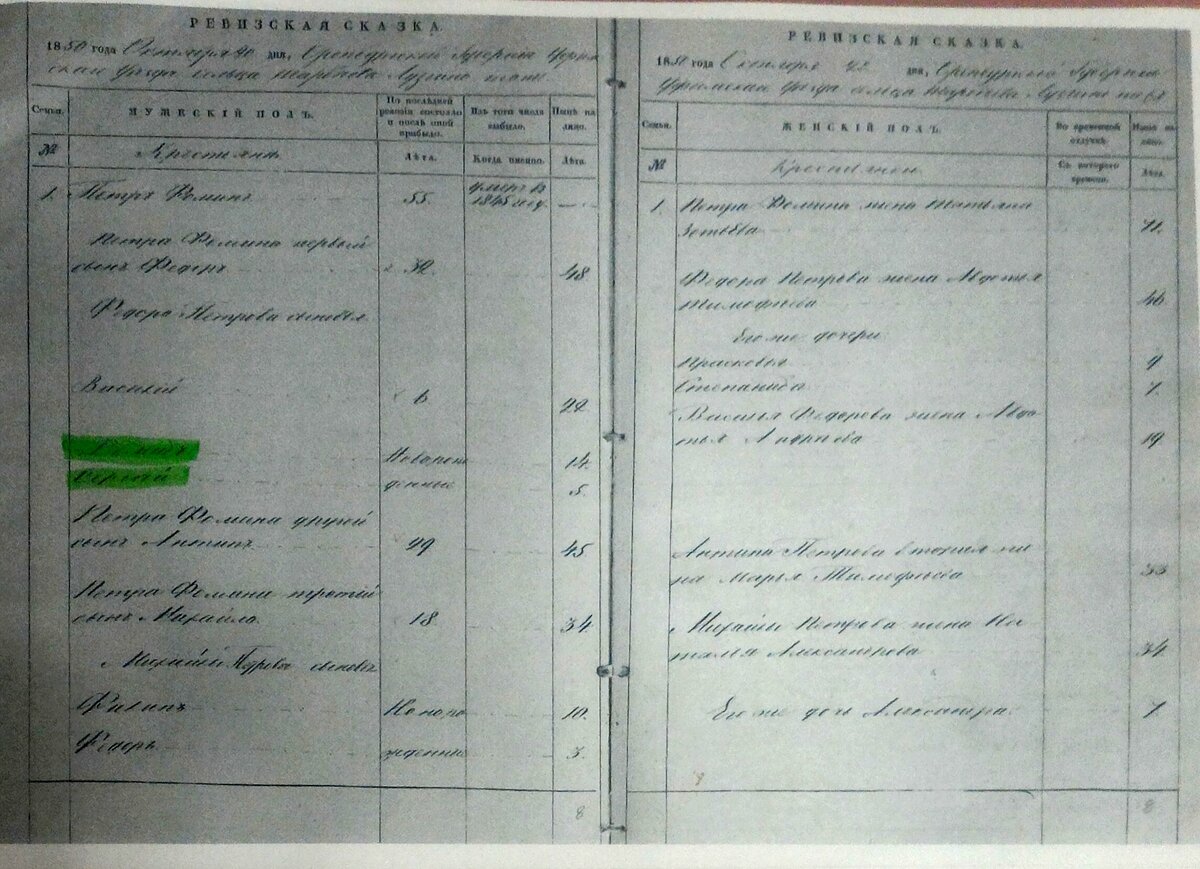 РЕВИЗСКАЯ СКАЗКА.
1850 года Октября 20 дня, Оренбургской Губернии Уфим-
скаго уезда сельца
Семьи. МУЖЕСКІЙ ПОЛЪ. По последней ревизіи состояло и после оной прибыло. Изъ того числа выбыло. Ныне на лицо.
№ Крестьяне Лета. Когда именно. Лета.
1. Петръ Фоминъ 55 умеръ въ 1845 году
Петра Фомина первый
сынъ Федоръ 32 48
Федора Петрова сыновья
Василий 6 22
Новорож 14
Сергей денные 5.
Петра Фомина другой
сынъ Антипъ 29 45
Петра Фомина третий
сынъ Михайла 18 34
Михайлы Петрова сыновья
Филипъ Новоро 10.
Федоръ жденные 3.
8
РЕВИЗСКАЯ СКАЗКА.
1850 года Октября дня, Оренбургской Губернии
Уфимскаго уезда сельца
Семьи. ЖЕНСКІЙ ПОЛЪ. Во временной отлучке. Ныне на лицо.
№ Крестьяне Съ котораго времени. Лета.
1. Петра Фомина жена Татьяна
71.
Федора Петрова жена Авдотья
Тимофеева 46
Его же дочери
Прасковья 9
Степанида 7.
Василья Федорова жена Авдо-
тья 19
Антипа Петрова вторая же
на Марья Тимофеева 33
Михайлы Петрова жена На
талья Александрова 34
Его же дочь Александра 7
8